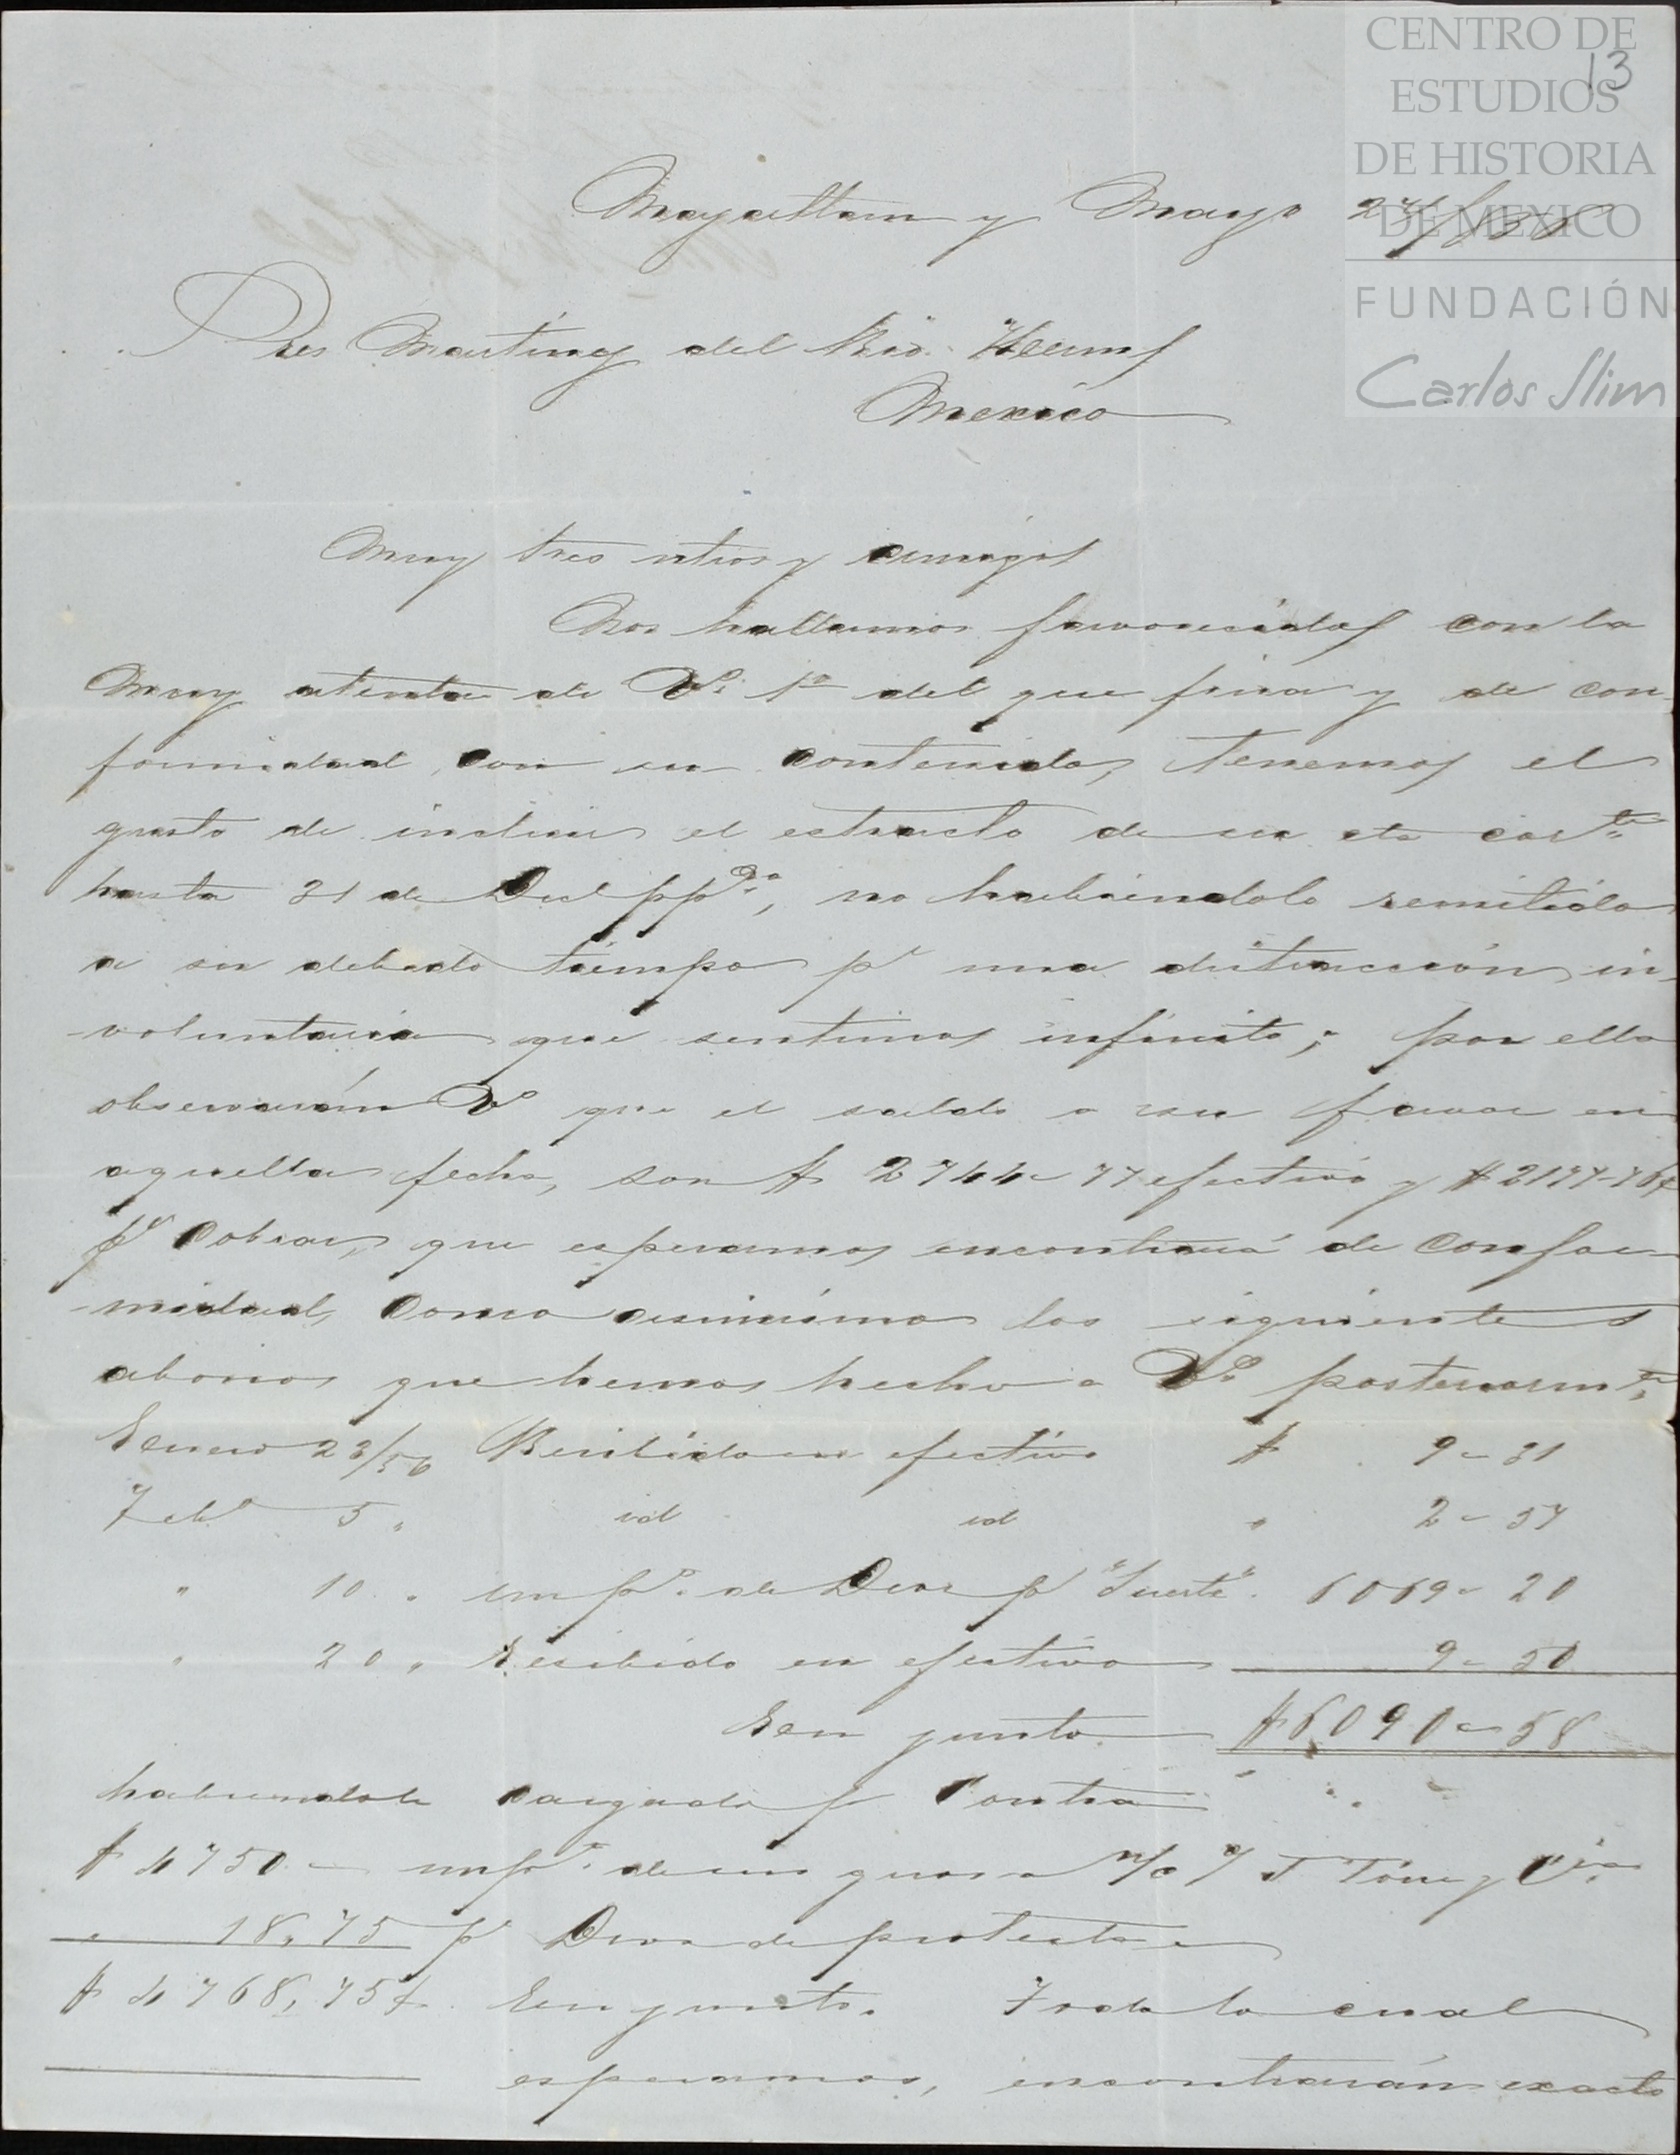 CENTRO DE
ESTUDIOS
DE HISTORIA
DE MEXICO
FUNDACIÓN
Carlos Slim
13
Mazatlan y Mayo 27/856
Sres Martinez del Rio Herms
Mexico
Muy sres ntros y amigos
Nos hallamos favorecidos con la
muy atenta de Vs. 1º del que fina y de con-
formidad con su contenido, tenemos el
gusto de incluir el estracto de su cta corte
hasta 31 de Dic ppdo, no habiendolo remitido
a su debido tiempo pr una distraccion in-
-voluntaria que sentimos infinito; por ello
observarán Vs que el saldo a su favor en
aquella fecha, son $ 2744-77 efectivo y $ 2177-76
pr Cobrar, que esperamos encontrará de confor-
-midad, como asimismo los siguientes
abonos que hemos hecho a Vs. posteriormte.
Enero 23/56 Recibido en efectivo $ 9-31
Feb 5 " id id " 2-57
" 10 " imps. de Dros pr "Suerte" 6069-20
" 20 " Recibido en efectivo 9-50
En junto $ 6090-58
habiendole cargado pr Contra
$ 4750- impe. de un giro a n/c T Torre y Cia.
" 18,75 pr Dros de protesto
$ 4768,75 En junto. Todo lo cual
esperamos, encontrarán exacto